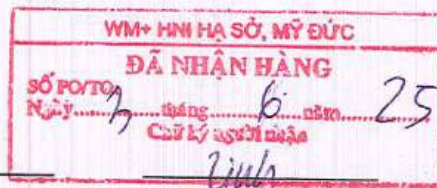 WM+ HNI HẠ SỞ, MỸ ĐỨC
ĐÃ NHẬN HÀNG
SỐ PO/TO
Ngày.....3.....tháng.....6.....năm.....25
Chữ ký người nhận